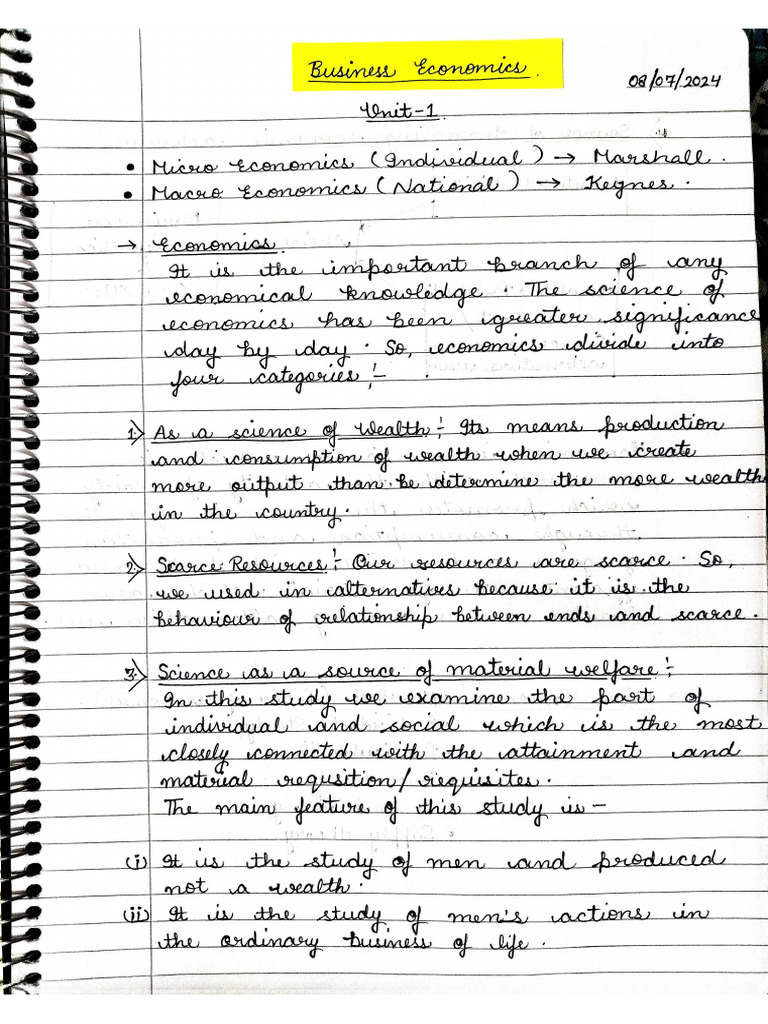 Business Economics.
08/07/2024
Unit-1
• Micro Economics (Individual) → Marshall.
• Macro Economics (National) → Keynes.
→ Economics
It is the important branch of any
economical knowledge. The science of
economics has been greater significance
day by day. So, economics divide into
four categories :-
1.) As a science of wealth :- Its means production
and consumption of wealth when we create
more output than be determine the more wealth
in the country.
2.) Scarce Resources :- Our resources are scarce. So,
we used in alternatives because it is the
behaviour of relationship between ends and scarce.
3.) Science as a source of material welfare :-
In this study we examine the part of
individual and social which is the most
closely connected with the attainment and
material requsition/requisites.
The main feature of this study is -
(i) It is the study of men and produced
not a wealth.
(ii) It is the study of men's actions in
the ordinary business of life.